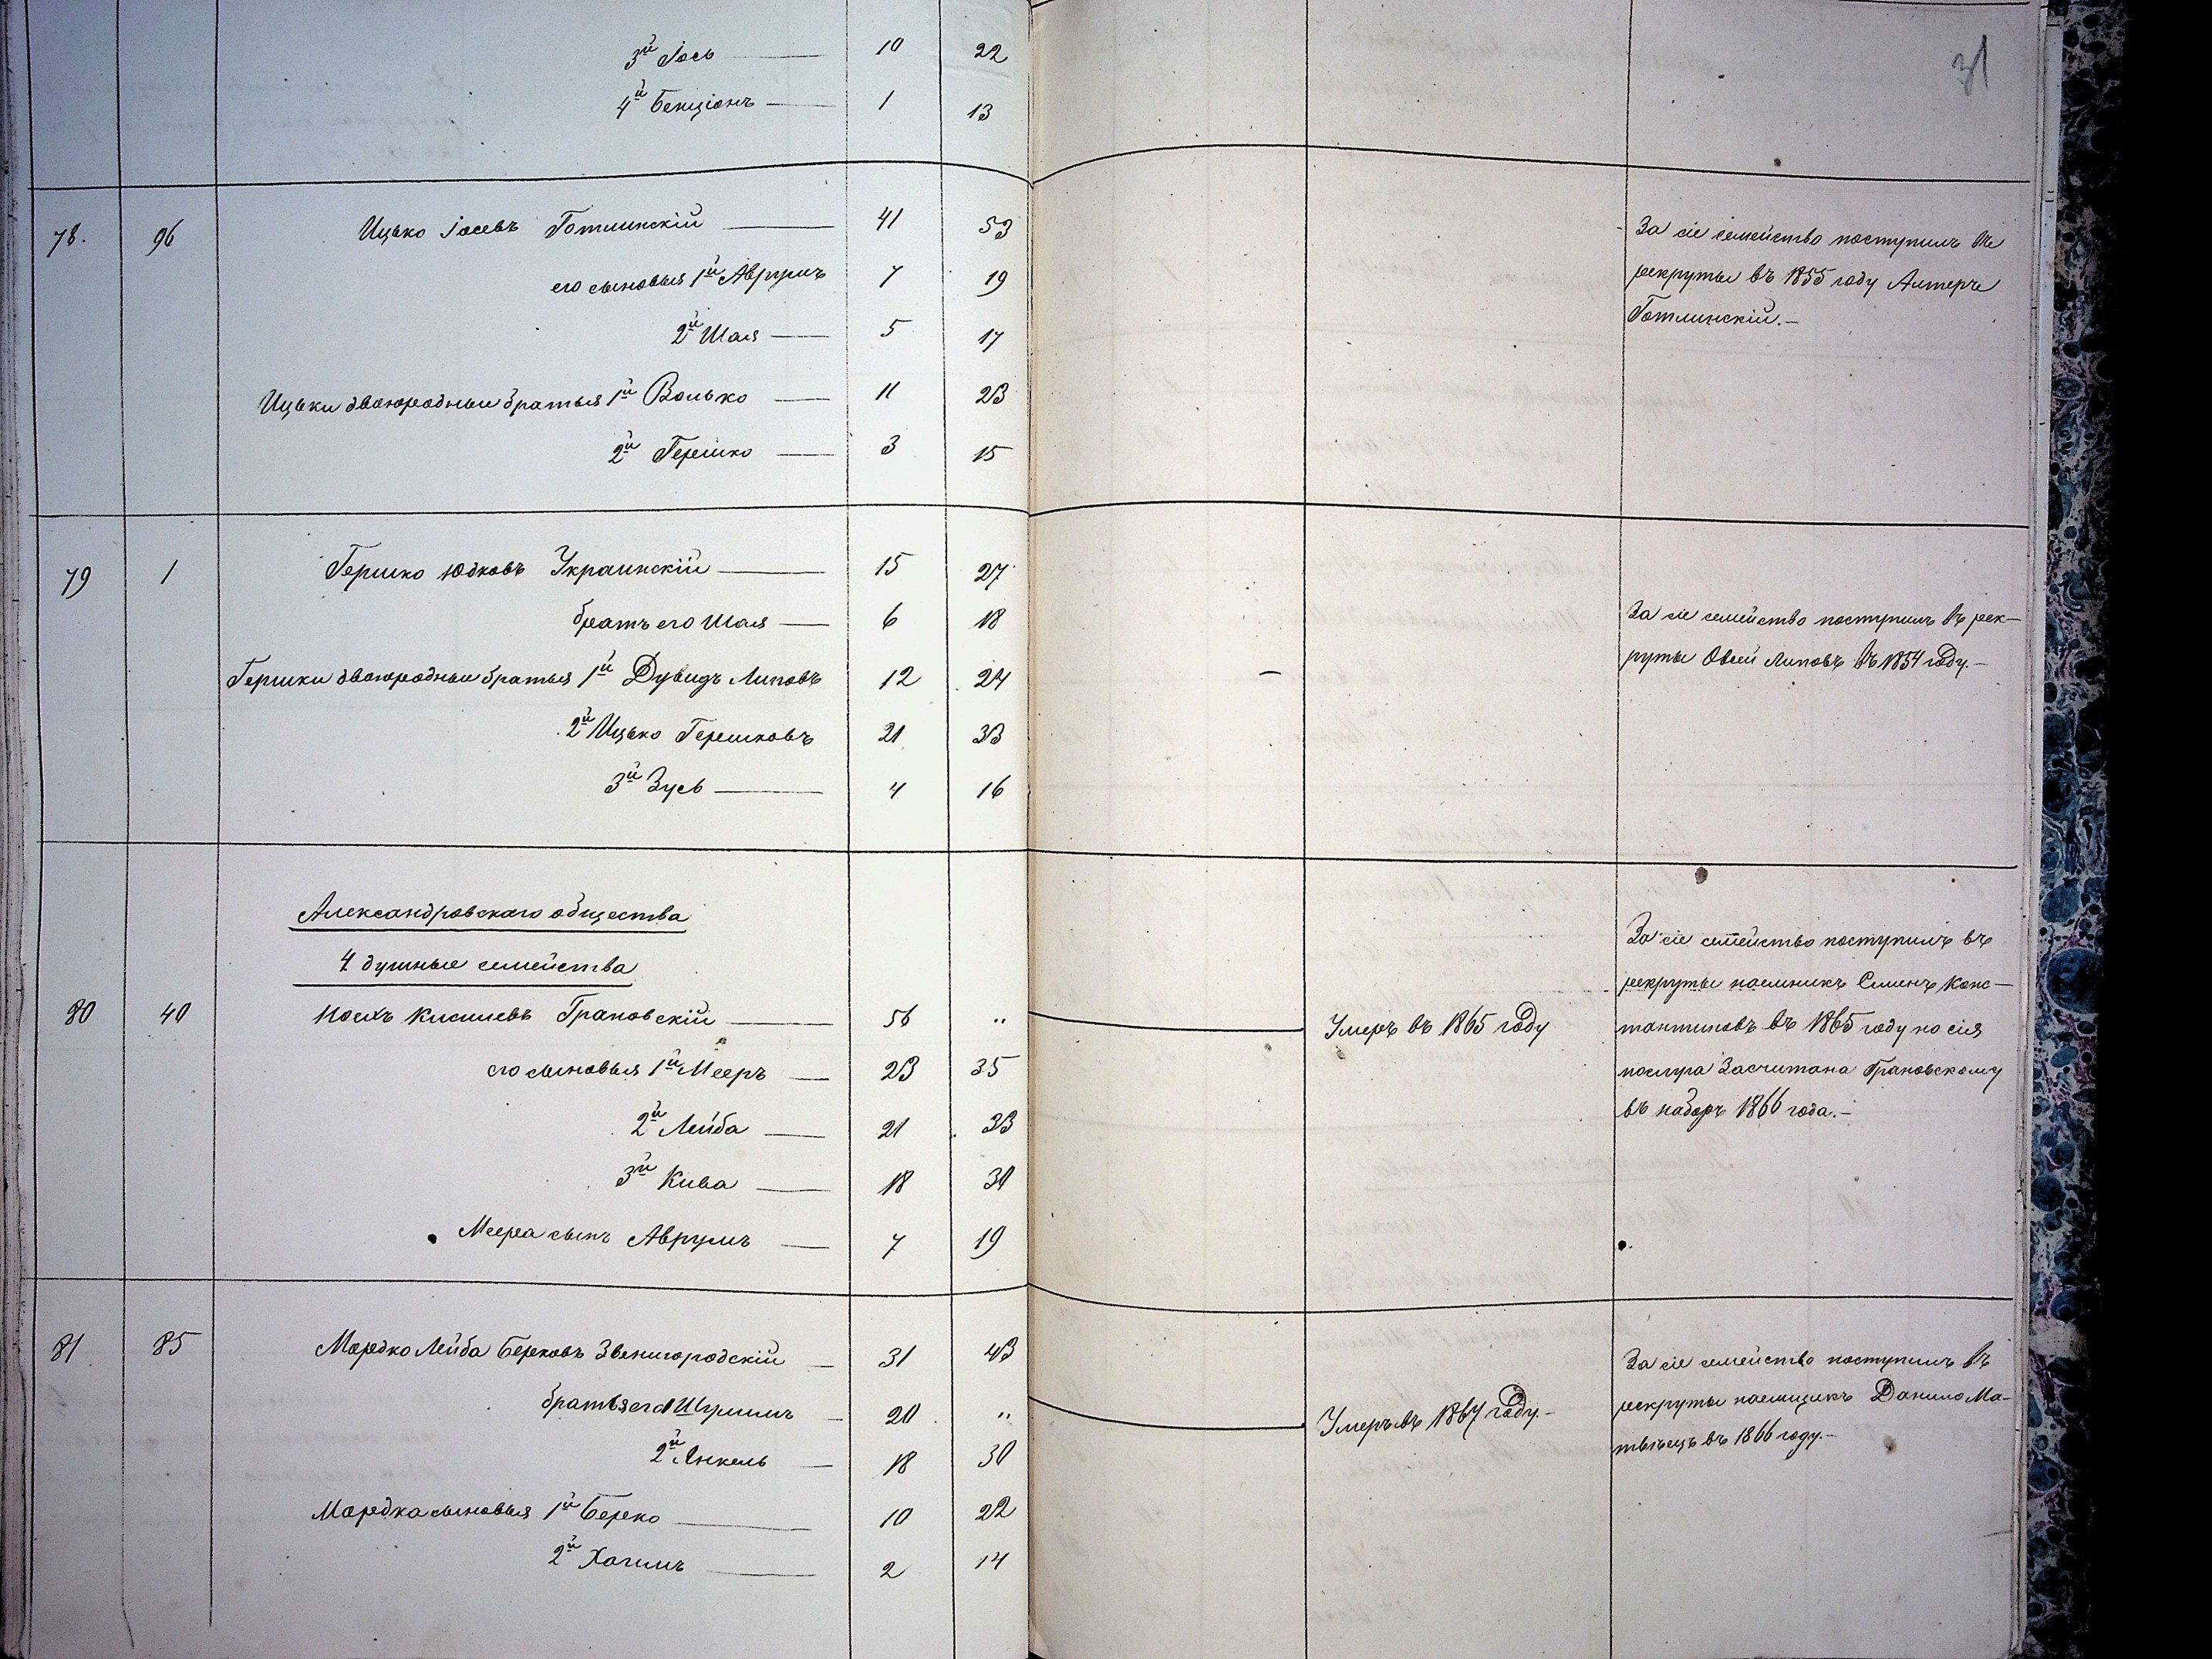 31
3й Іось 10 22
4й Бенціонъ 1 13
78. 96 Ицько Іосевъ Готлинскій 41 53
его сыновья 1й Аврумъ 7 19
2й Шая 5 17
Ицьки двоюродные братья 1й Волько 11 23
2й Гершко 3 15
За сіе семейство поступилъ въ
рекруты въ 1855 году Алтеръ
Готлинскій.—
79 1 Гершко Юдковъ Украинскій 15 27
братъ его Шая 6 18
Гершки двоюродные братья 1й Дувидъ Липовъ 12 24
2й Ицько Гершковъ 21 33
3й Зусь 4 16
За сіе семейство поступилъ въ рек—
руты Овсей Липовъ въ 1854 году.—
Александровскаго общества
4 душные семейства
80 40 Носихъ Кисилевъ Грановскій 56 „ Умеръ въ 1865 году
его сыновья 1й Мееръ 23 35
2й Лейба 21 33
3й Кива 18 30
Меера сынъ Аврумъ 7 19
За сіе семейство поступилъ въ
рекруты наемникъ Семенъ Конс—
тантиновъ въ 1865 году но сія
послуга засчитана Грановскому
въ наборъ 1866 года.—
81 85 Мордко Лейба Берковъ Звенигородскій 31 43
братья его 1й Шулимъ 20 „ Умеръ въ 1867 году.—
2й Янкель 18 30
Мордка сыновья 1й Берко 10 22
2й Хаимъ 2 14
За сіе семейство поступилъ въ
рекруты наемщикъ Данило Ма-
твѣецъ въ 1866 году.—